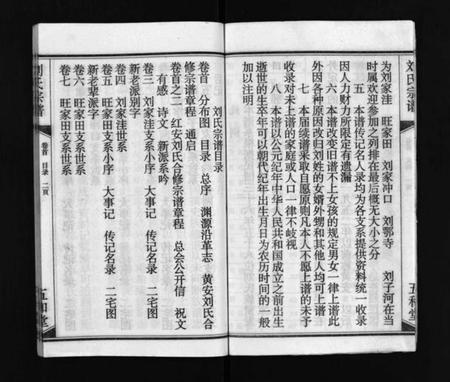 刘氏宗谱
五和堂
为刘家洼 旺家田 刘家冲口 刘鄂寺 刘子河在当
时属欢迎参加之列排在最后概无大小之分
五 本谱传记名人录均为各支系提供资料统一收录
因人力财力所限定有遗漏
六 本谱改变旧谱不上女孩的规定男女一律上谱此
外因各种原因改归刘姓的女婿外甥和其他人均可上谱
七 本届续谱采取自愿原则凡本人不愿上谱的未予
收录对未上谱的家庭或人口一律不歧视
八 本谱以公元纪年中华人民共和国成立之前出生
逝世的生卒年可以朝代纪年出生月日为农历时间的一般
加以注明
刘氏宗谱目录
卷首 分布图 目录 总序 渊源沿革志 黄安刘氏合
修宗谱章程 通启
卷首之二 红安刘氏合修宗谱章程 总会公开信 祝文
有感 诗文 新派系吟
卷三 刘家洼支系小序 大事记 传记名录 二宅图
新老派别字
卷四 刘家洼世系
卷五 旺家田支系小序 大事记 传记名录 二宅图
新老辈派字
卷六 旺家田支系世系
卷七 旺家田支系世系
刘氏宗谱
卷首 目录 二页
五和堂